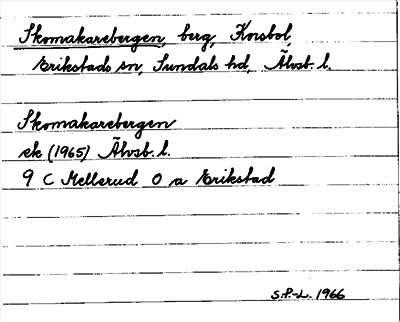 Skomakarebergen, berg, Knobol,
Erikstads sn, Sundals hd, Älvsb. l.
Skomakarebergen
ek (1965) Älvsb. l.
9 C Mellerud O a Erikstad
S.P.-L. 1966